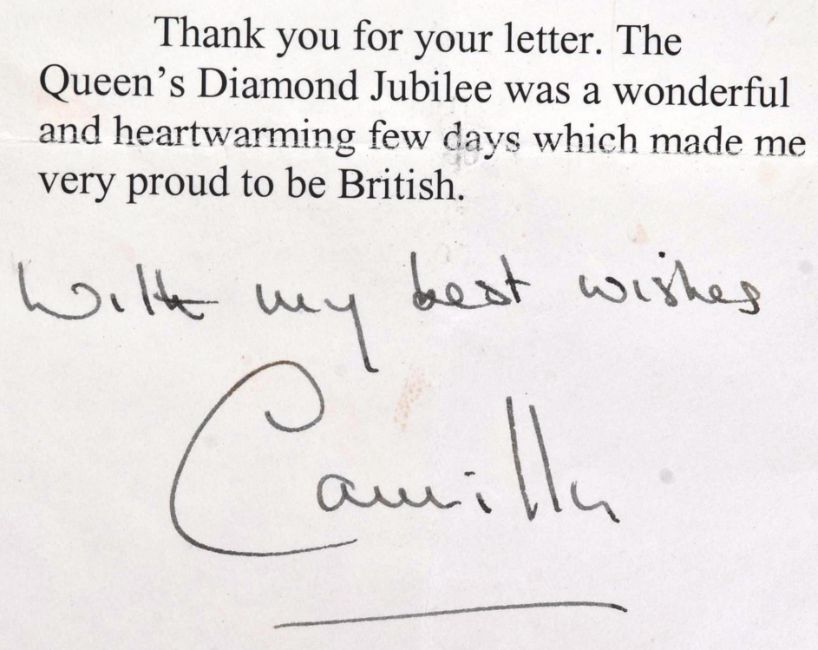 Thank you for your letter. The
Queen's Diamond Jubilee was a wonderful
and heartwarming few days which made me
very proud to be British.
With my best wishes
Camilla